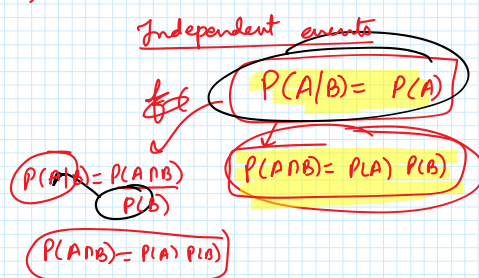 Independent events
P(A/B) = P(A)
P(A|B) = P(A∩B)
P(B)
P(A∩B) = P(A) P(B)
P(A∩B) = P(A) P(B)